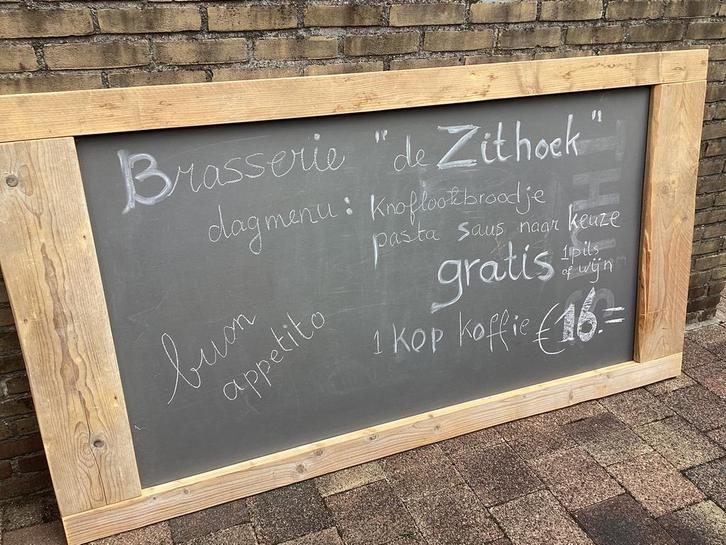 Brasserie "de Zithoek"
dagmenu: Knoflookbroodje
pasta saus naar keuze
gratis 1 pils
of wijn
1 kop koffie €16.=
buon
appetito